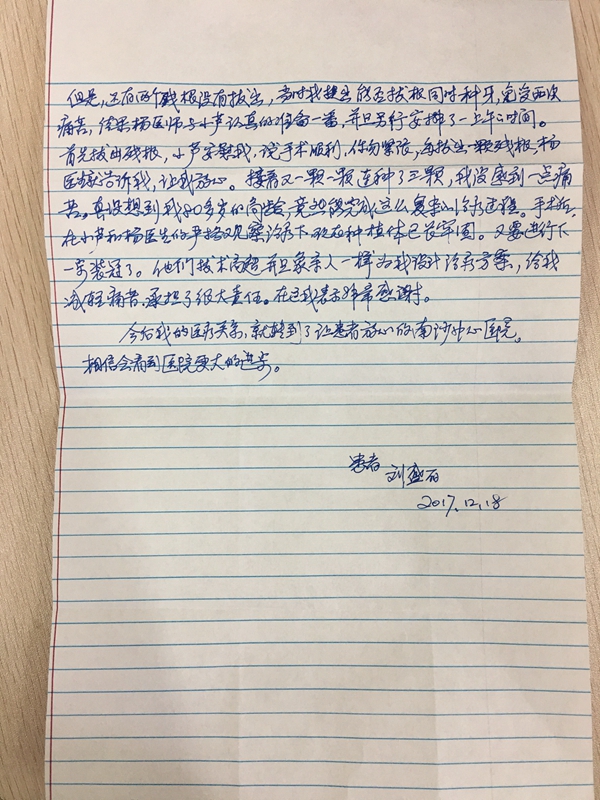 但是,还有两个残根没有拔出,当时我提出能否拔根同时种牙,免受两次
痛苦,结果杨医师与小芦认真的准备一番,并且另行安排了一上午时间。
首先拔出残根,小芦安慰我,说手术顺利,你勿紧张,每拔出一颗残根,杨
医师告诉我,让我放心。接着又一颗一颗连种了三颗,我没感到一点痛
苦。真没想到我80多岁的高龄,竟然能完成这么复杂的治疗过程。手术后,
在小芦和杨医生的严格观察治疗下现在种植体已长牢固。又要进行下
一步装冠了。他们技术高超并且象亲人一样为我设计治疗方案,给我
减轻痛苦,承担了很大责任。在这我表示非常感谢。
今后我的医疗关系,就转到了让患者放心的南沙中心医院。
相信会看到医院更大的进步。
患者
刘盛石
2017.12.18